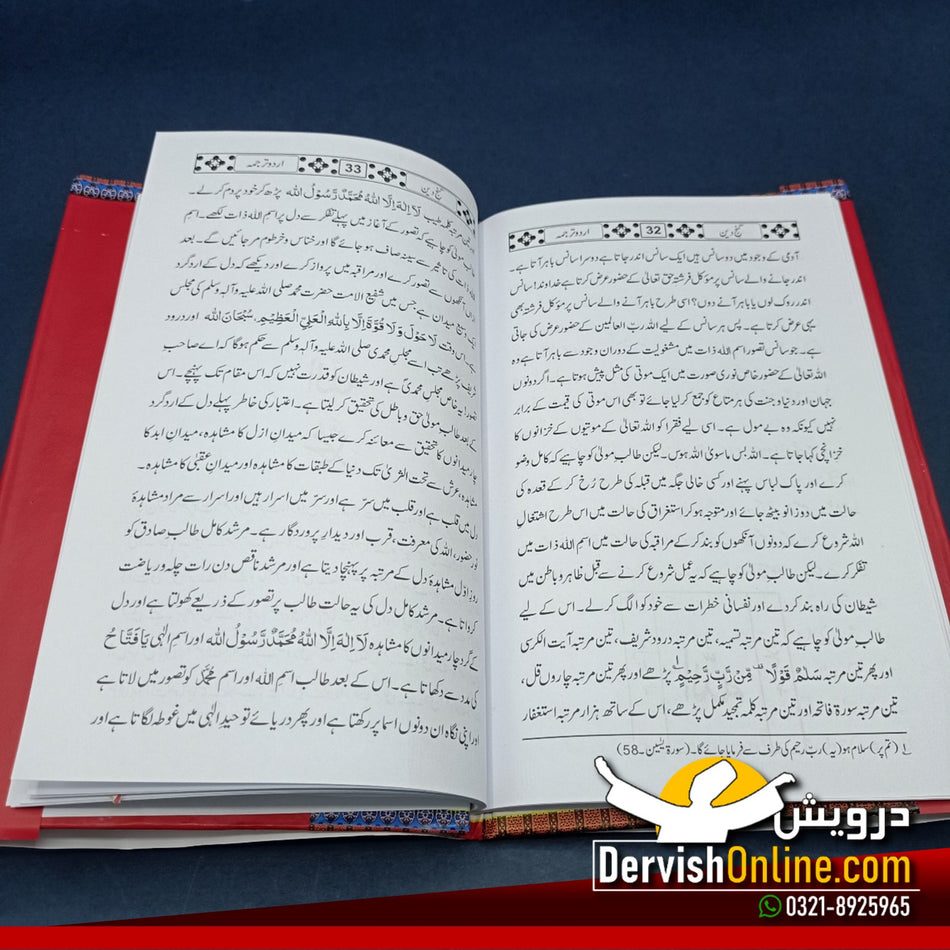 گنج دین 32 اردو ترجمہ
آدمی کے وجود میں دو سانس ہیں ایک سانس اندر جاتا ہے دوسرا سانس باہر آتا ہے۔
اندر جانے والے سانس پر مؤکل فرشتہ حق تعالیٰ کے حضور عرض کرتا ہے خداوند! سانس
اندر روک لوں یا باہر آنے دوں؟ اسی طرح باہر آنے والے سانس پر مؤکل فرشتہ بھی
یہی عرض کرتا ہے۔ پس ہر سانس کے لیے اللہ ربّ العالمین کے حضور عرض کی جاتی
ہے۔ جو سانس تصور اسم اللہ ذات میں مشغولیت کے دوران وجود سے باہر آتا ہے وہ
اللہ تعالیٰ کے حضور خاص نوری صورت میں ایک موتی کی مثل پیش ہوتا ہے۔ اگر دونوں
جہان اور دنیا و جنت کی ہر متاع کو جمع کر لیا جائے تو بھی اس موتی کی قیمت کے برابر
نہیں کیونکہ وہ بے مول ہے۔ اسی لیے فقرا کو اللہ تعالیٰ کے موتیوں کے خزانوں کا
خزانچی کہا جاتا ہے۔ اللہ بس ماسویٰ اللہ ہوس۔ لیکن طالب مولیٰ کو چاہیے کہ کامل وضو
کرے اور پاک لباس پہنے اور کسی خالی جگہ میں قبلہ کی طرف رُخ کر کے قعدہ کی
حالت میں دو زانو بیٹھ جائے اور متوجہ ہو کر استغراق کی حالت میں اس طرح اشتغالِ
اللہ شروع کرے کہ دونوں آنکھوں کو بند کر کے مراقبہ کی حالت میں اسم اللہ ذات میں
تفکر کرے۔ لیکن طالب مولیٰ کو چاہیے کہ یہ عمل شروع کرنے سے قبل ظاہر و باطن میں
شیطان کی راہ بند کر دے اور نفسانی خطرات سے خود کو الگ کر لے۔ اس کے لیے
طالب مولیٰ کو چاہیے کہ تین مرتبہ تسمیہ، تین مرتبہ درود شریف، تین مرتبہ آیت الکرسی
اور پھر تین مرتبہ سَلٰمٌ قَوْلًا مِّنْ رَّبٍّ رَّحِیْمٍ ۱ پڑھے اور پھر تین مرتبہ چاروں قُل،
تین مرتبہ سورۃ فاتحہ اور تین مرتبہ کلمہ تمجید مکمل پڑھے، اس کے ساتھ ہزار مرتبہ استغفار
۱ (تم پر) سلام ہو (یہ) ربّ رحیم کی طرف سے فرمایا جائے گا۔ (سورۃ یٰسین۔58)
گنج دین 33 اردو ترجمہ
مرتبہ کلمہ طیب لَآ اِلٰهَ اِلَّا اللهُ مُحَمَّدٌ رَّسُوْلُ الله پڑھ کر خود پر دم کر لے۔
مولیٰ کو چاہیے کہ تصور کے آغاز میں پہلے تفکر سے دل پر اسم اللہ ذات لکھے۔ اسم
ذات کی تاثیر سے سینہ صاف ہو جائے گا اور خناس و خرطوم مر جائیں گے۔ بعد
آنکھوں سے تصور کرے اور مراقبہ میں پرواز کرے اور دیکھے کہ دل کے اردگرد
وسیع میدان ہے جس میں شفیع الامت حضرت محمد صلی اللہ علیہ وآلہ وسلم کی مجلس
ہے۔ اس وقت لَا حَوْلَ وَلَا قُوَّةَ اِلَّا بِاللهِ الْعَلِيِّ الْعَظِيْمِ، سُبْحَانَ اللهِ اور درود
پڑھے تب اسے مجلس محمدی صلی اللہ علیہ وآلہ وسلم سے حکم ہوگا کہ اے صاحب
تصور! یہ خاص مجلس محمدیؐ ہے اور شیطان کو قدرت نہیں کہ اس مقام تک پہنچے۔ اس
کے بعد طالب مولیٰ حق و باطل کی تحقیق کر لیتا ہے۔ اعتبار کی خاطر پہلے دل کے اردگرد
چار میدانوں کا تحقیق سے معائنہ کرے جیسا کہ میدانِ ازل کا مشاہدہ، میدانِ ابد کا
مشاہدہ، عرش سے تحت الثریٰ تک دنیا کے طبقات کا مشاہدہ اور میدانِ عقبیٰ کا مشاہدہ۔
دل میں قلب ہے اور قلب میں سِرّ ہے اور سِرّ میں اسرار ہیں اور اسرار سے مراد مشاہدۂ
نورِ حضور، اللہ کی معرفت، قرب اور دیدارِ پروردگار ہے۔ مرشد کامل طالب صادق کو
روزِ اوّل مشاہدۂ دل کے مرتبہ پر پہنچا دیتا ہے اور مرشد ناقص دن رات چلہ و ریاضت
کرواتا ہے۔ مرشد کامل دل کی یہ حالت طالب پر تصور کے ذریعے کھولتا ہے اور دل
کے گرد چار میدانوں کا مشاہدہ لَآ اِلٰهَ اِلَّا اللهُ مُحَمَّدٌ رَّسُوْلُ الله اور اسمِ الٰہی يَا فَتَّاحُ
کی مدد سے دکھاتا ہے۔ اس کے بعد طالب اسمِ اللہ اور اسم محمدؐ کو تصور میں لاتا ہے
اور اپنی نگاہ ان دونوں اسما پر رکھتا ہے اور پھر دریائے توحیدِ الٰہی میں غوطہ لگاتا ہے اور
درویش
DervishOnline.com
0321-8925965